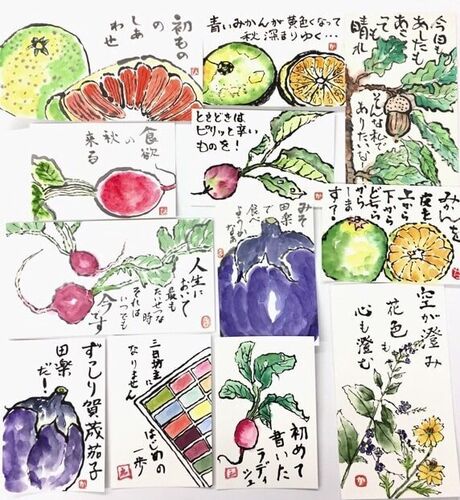 初もの
の
しあ
わせ
青いみかんが黄色くなって
秋深まりゆく…
今日も
あしたも
あさっても
晴れ
そんな私で
ありたいな
食欲
の秋
来る
ときどきは
ピリッと辛い
ものを!
みそ
田楽
で
食べ
ようかなぁ
みかんを
皮を
上から
下から
どちらから
します?
人生に
おいて
最も
たいせつな時
それは
いつでも
今です
空が澄み
花色も
心も澄む
ずっしり賀茂茄子
田楽
だ!
三日坊主に
なりません
はじめの
一歩
初めて
書いた
ラディ
シュ